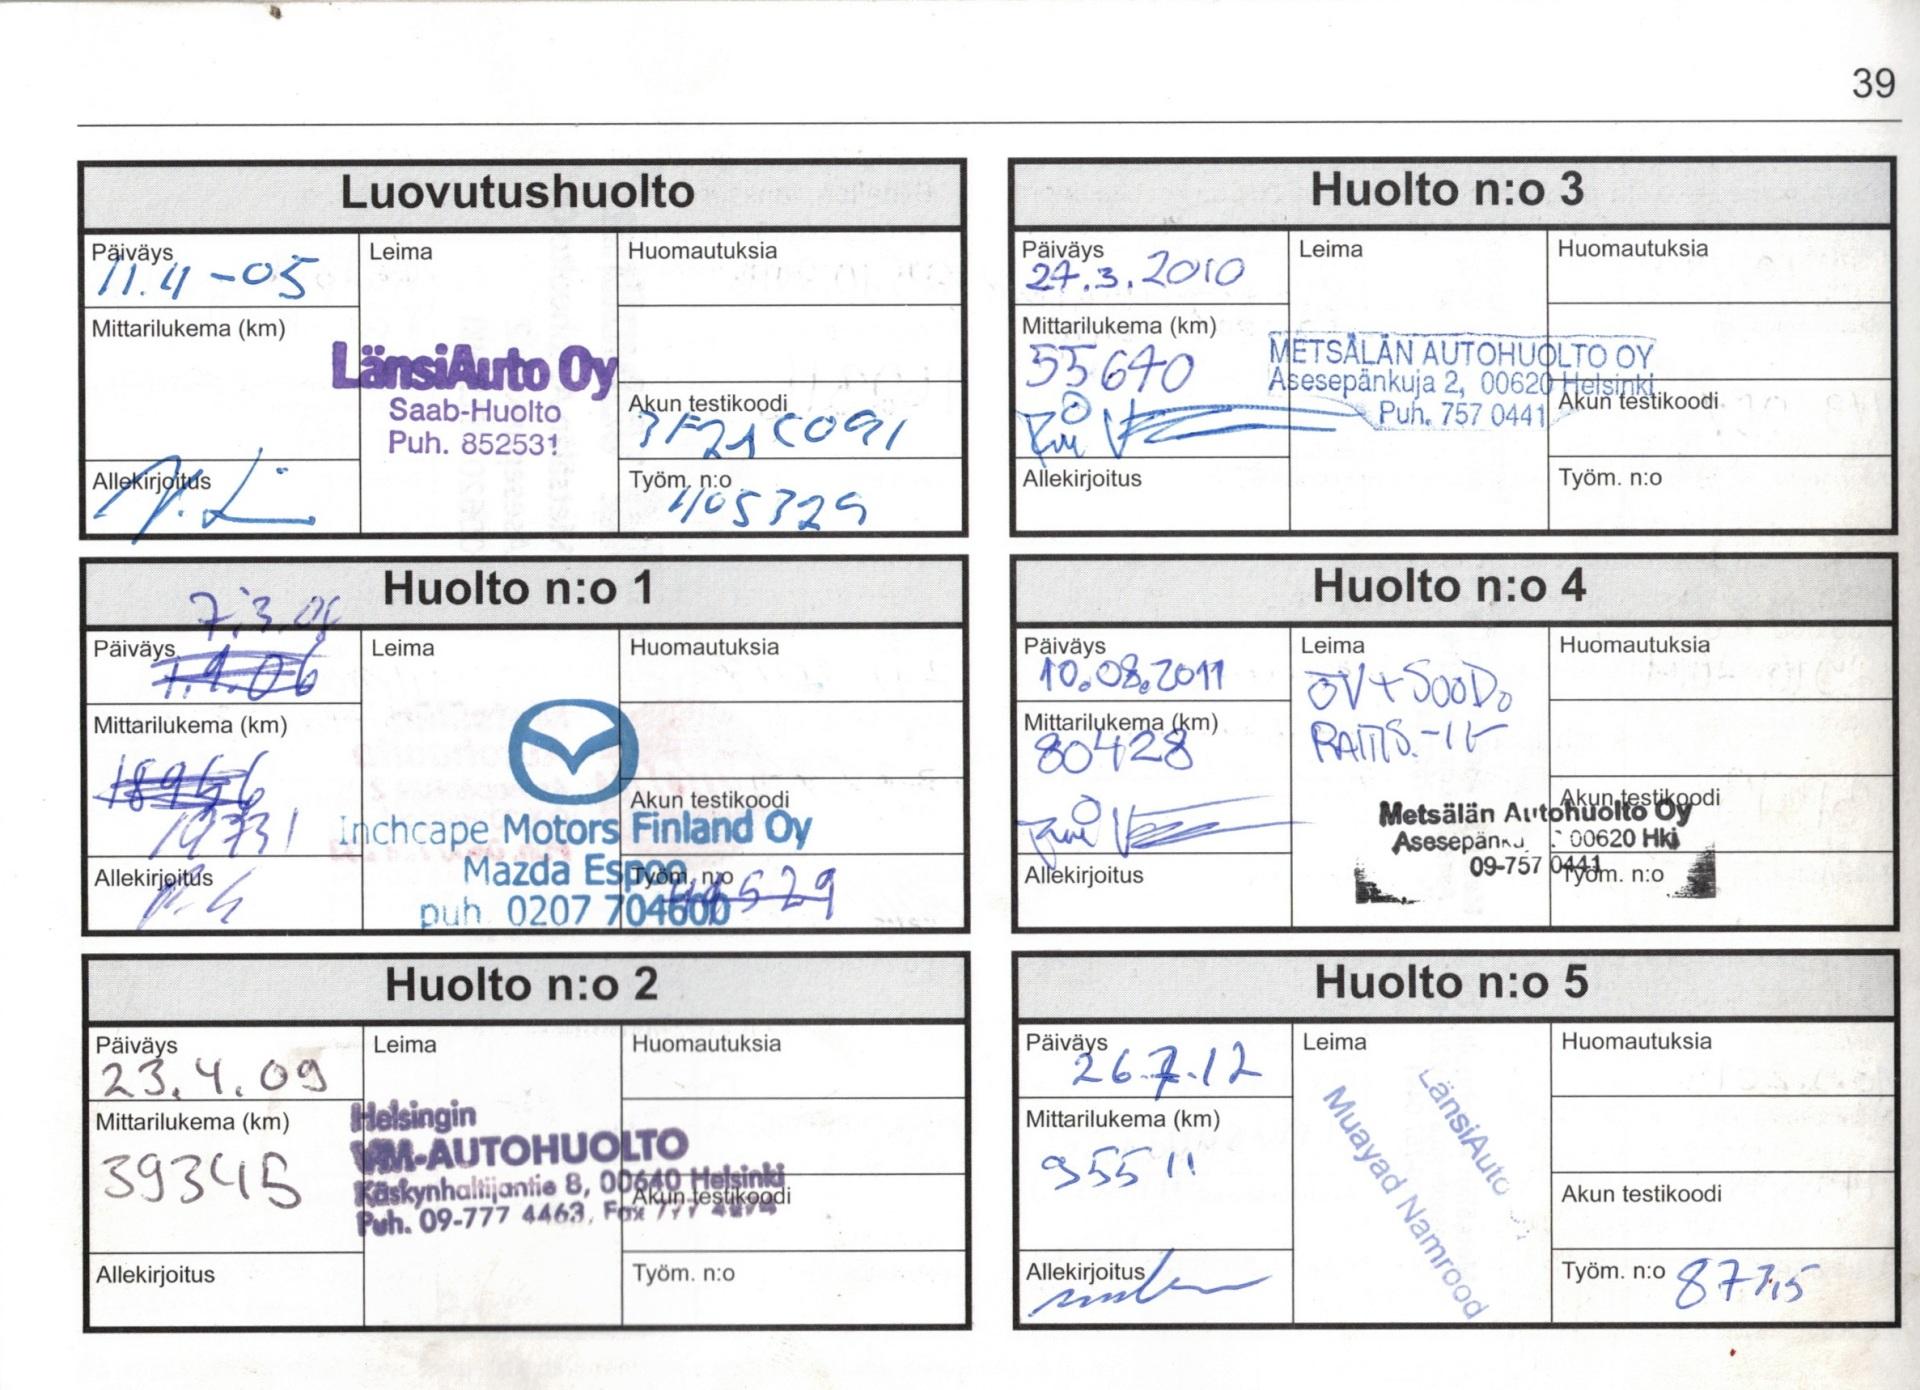 39
Luovutushuolto
Päiväys
11.4-05
Leima
Huomautuksia
Mittarilukema (km)
LänsiAuto Oy
Saab-Huolto
Puh. 852531
Akun testikoodi
Allekirjoitus
Työm. n:o
Huolto n:o 1
Päiväys
Leima
Huomautuksia
Mittarilukema (km)
Akun testikoodi
Inchcape Motors Finland Oy
Mazda Espoo
puh. 0207 704600
Allekirjoitus
Työm. n:o
Huolto n:o 2
Päiväys
23.4.09
Leima
Huomautuksia
Mittarilukema (km)
39345
Helsingin
VM-AUTOHUOLTO
Käskynhaltijantie 8, 00640 Helsinki
Puh. 09-777 4463, Fax 777 4274
Akun testikoodi
Allekirjoitus
Työm. n:o
Huolto n:o 3
Päiväys
27.3.2010
Leima
Huomautuksia
Mittarilukema (km)
55640
METSÄLÄN AUTOHUOLTO OY
Asesepänkuja 2, 00620 Helsinki
Puh. 757 0441
Akun testikoodi
Allekirjoitus
Työm. n:o
Huolto n:o 4
Päiväys
10.08.2011
Leima
ÖV+SOOD.
Huomautuksia
Mittarilukema (km)
80428
Akun testikoodi
Metsälän Autohuolto Oy
00620 Hki
09-757 0441
Allekirjoitus
Työm. n:o
Huolto n:o 5
Päiväys
26.7.12
Leima
Huomautuksia
Mittarilukema (km)
95511
LänsiAuto
Muayad Namrood
Akun testikoodi
Allekirjoitus
Työm. n:o